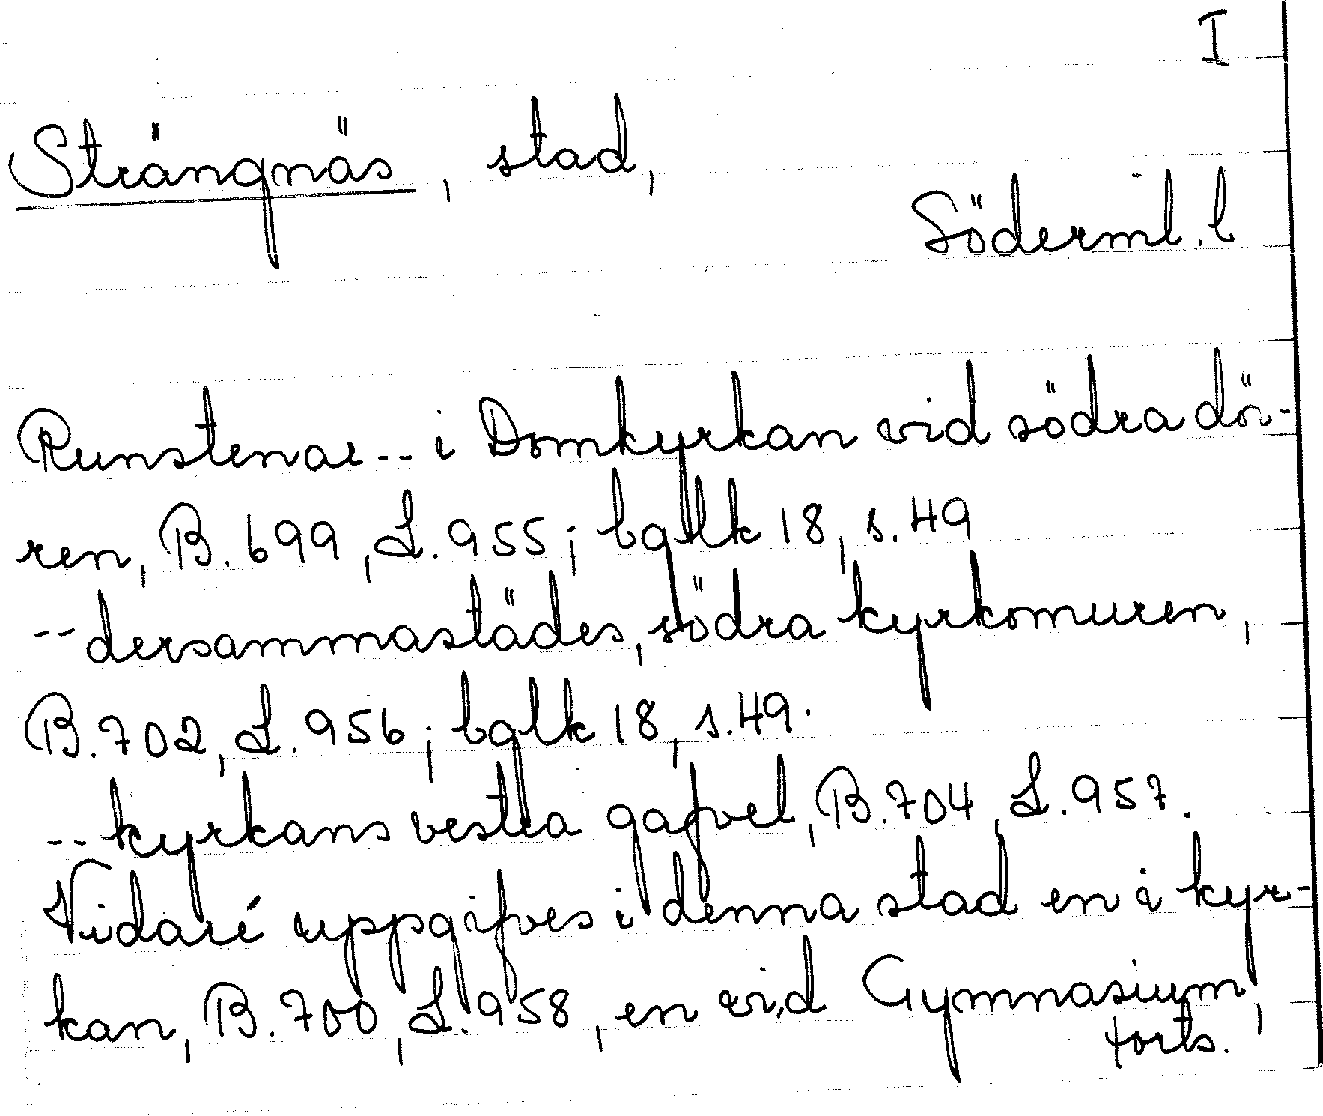 I
Strängnäs, stad,
Söderml. l
Runstenar -- i Domkyrkan vid södra dö-
ren, B. 699, L. 955; bglk 18, s. 49
-- dersammastädes, södra kyrkomuren,
B. 702, L. 956; bglk 18, s. 49.
-- kyrkans vestra gafvel, B. 704, L. 957.
Vidare uppgifves i denna stad en i kyr-
kan, B. 700, L. 958, en vid Gymnasium,
forts.